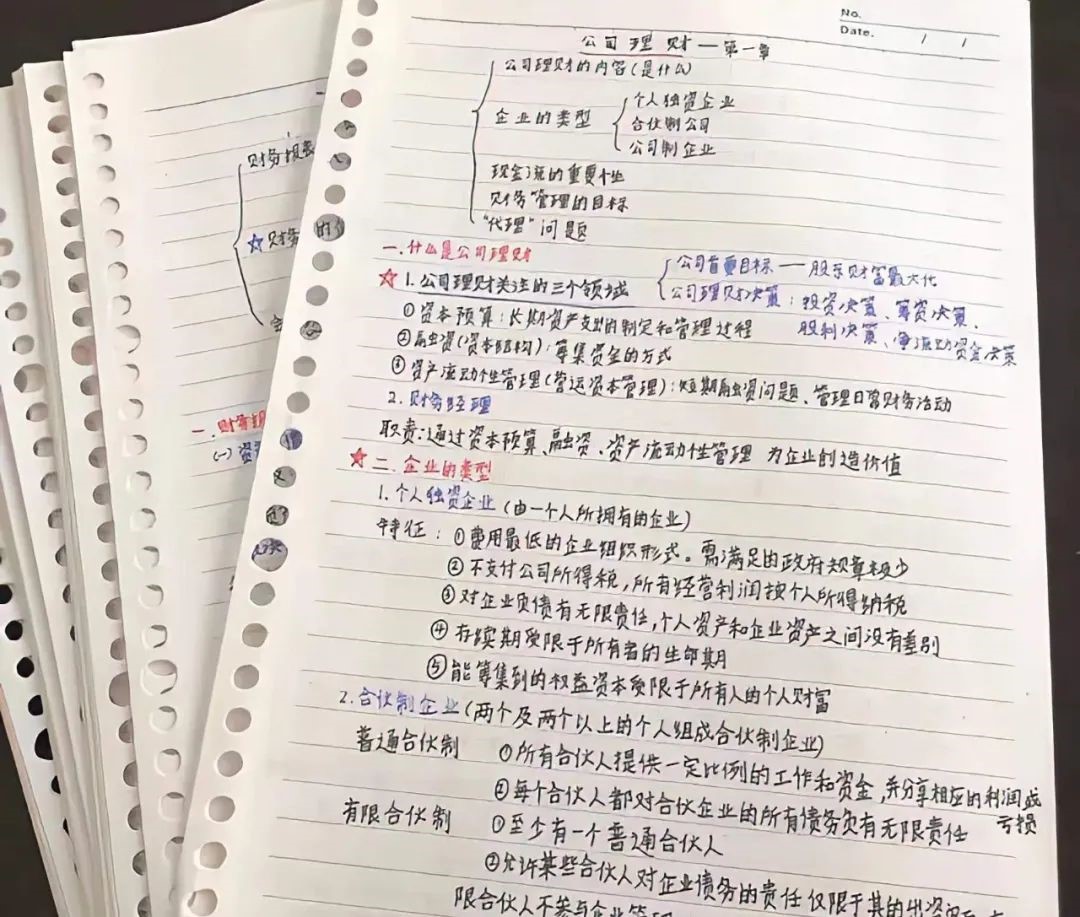 No.
Date. / /
公司理财—第一章
公司理财的内容(是什么)
企业的类型
个人独资企业
合伙制公司
公司制企业
现金流的重要性
财务管理的目标
"代理"问题
一.什么是公司理财
公司首要目标——股东财富最大化
☆1.公司理财关注的三个领域
公司理财决策:投资决策、筹资决策、
股利决策、净流动资金决策
①资本预算:长期资产支出的制定和管理过程
②融资(资本结构):筹集资金的方式
③资产流动性管理(营运资本管理):短期融资问题、管理日常财务活动
2.财务经理
职责:通过资本预算、融资、资产流动性管理 为企业创造价值
☆二.企业的类型
1.个人独资企业(由一个人所拥有的企业)
特征:①费用最低的企业组织形式。需满足的政府规章极少
②不支付公司所得税,所有经营利润按个人所得纳税
③对企业负债有无限责任,个人资产和企业资产之间没有差别
④存续期受限于所有者的生命期
⑤能筹集到的权益资本受限于所有人的个人财富
2.合伙制企业(两个及两个以上的个人组成合伙制企业)
普通合伙制 ①所有合伙人提供一定比例的工作和资金,并分享相应的利润或
亏损
②每个合伙人都对合伙企业的所有债务负有无限责任
有限合伙制 ①至少有一个普通合伙人
②允许某些合伙人对企业债务的责任仅限于其的出资
限合伙人不参与企业管理
财务报表
☆财务
一.财务
(一)资